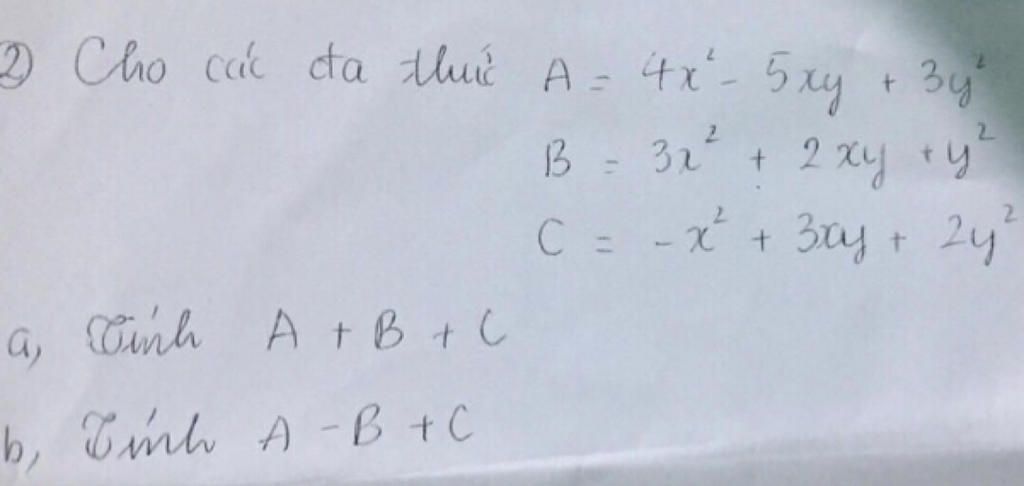 2) Cho các đa thức A = 4x² - 5xy + 3y²
B = 3x² + 2xy + y²
C = -x² + 3xy + 2y²
a, Tính A + B + C
b, Tính A - B + C